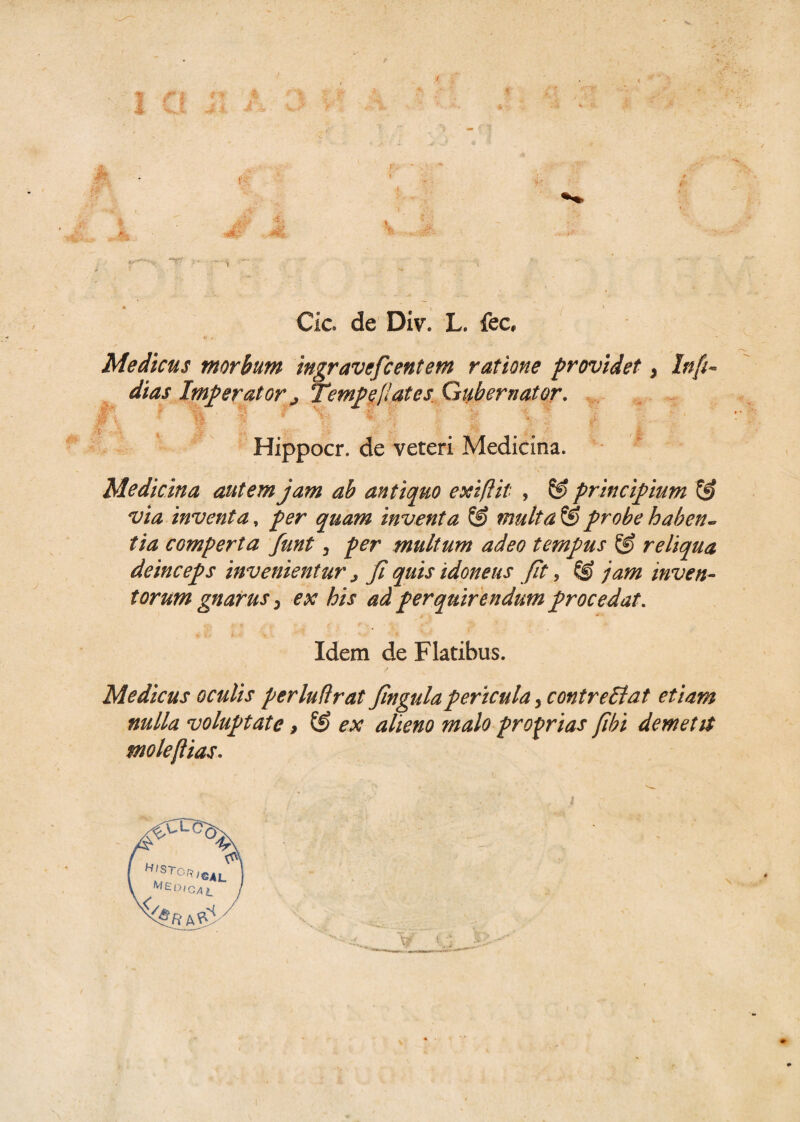 Cic. de Div. L. ſec.
Medicus morbum ingraveſcentem ratione providet, Inſi-
dias Imperator, Tempeſtates Gubernator.
Hippocr. de veteri Medicina.
Medicina autem jam ab antiquo exiſtit , & principium &
via inventa, per quam inventa & multa & probe haben-
tia comperta ſunt, per multum adeo tempus & reliqua
deinceps invenientur, ſi quis idoneus ſit, & jam inven-
torum gnarus, ex his ad perquirendum procedat.
Idem de Flatibus.
Medicus oculis perluſtrat ſingula pericula, contrectat etiam
nulla voluptate, & ex alieno malo proprias ſibi demetit
moleſtias.
WELLCOME
HISTORICAL
MEDICAL
LIBRARY